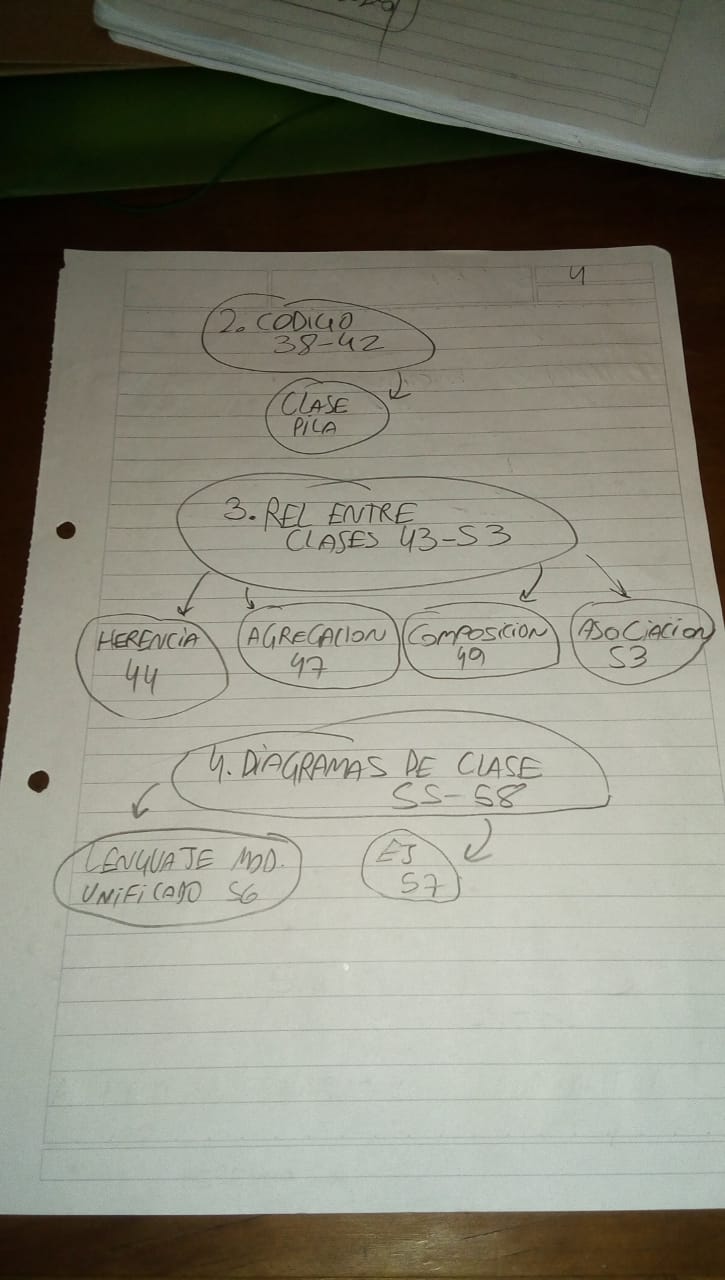 4
2. CODIGO
38-42
CLASE
PILA
3. REL ENTRE
CLASES 43-53
HERENCIA
44
AGREGACION
47
COMPOSICION
49
ASOCIACION
53
4. DIAGRAMAS DE CLASE
55-58
LENGUAJE MOD.
UNIFICADO 56
EJ
57